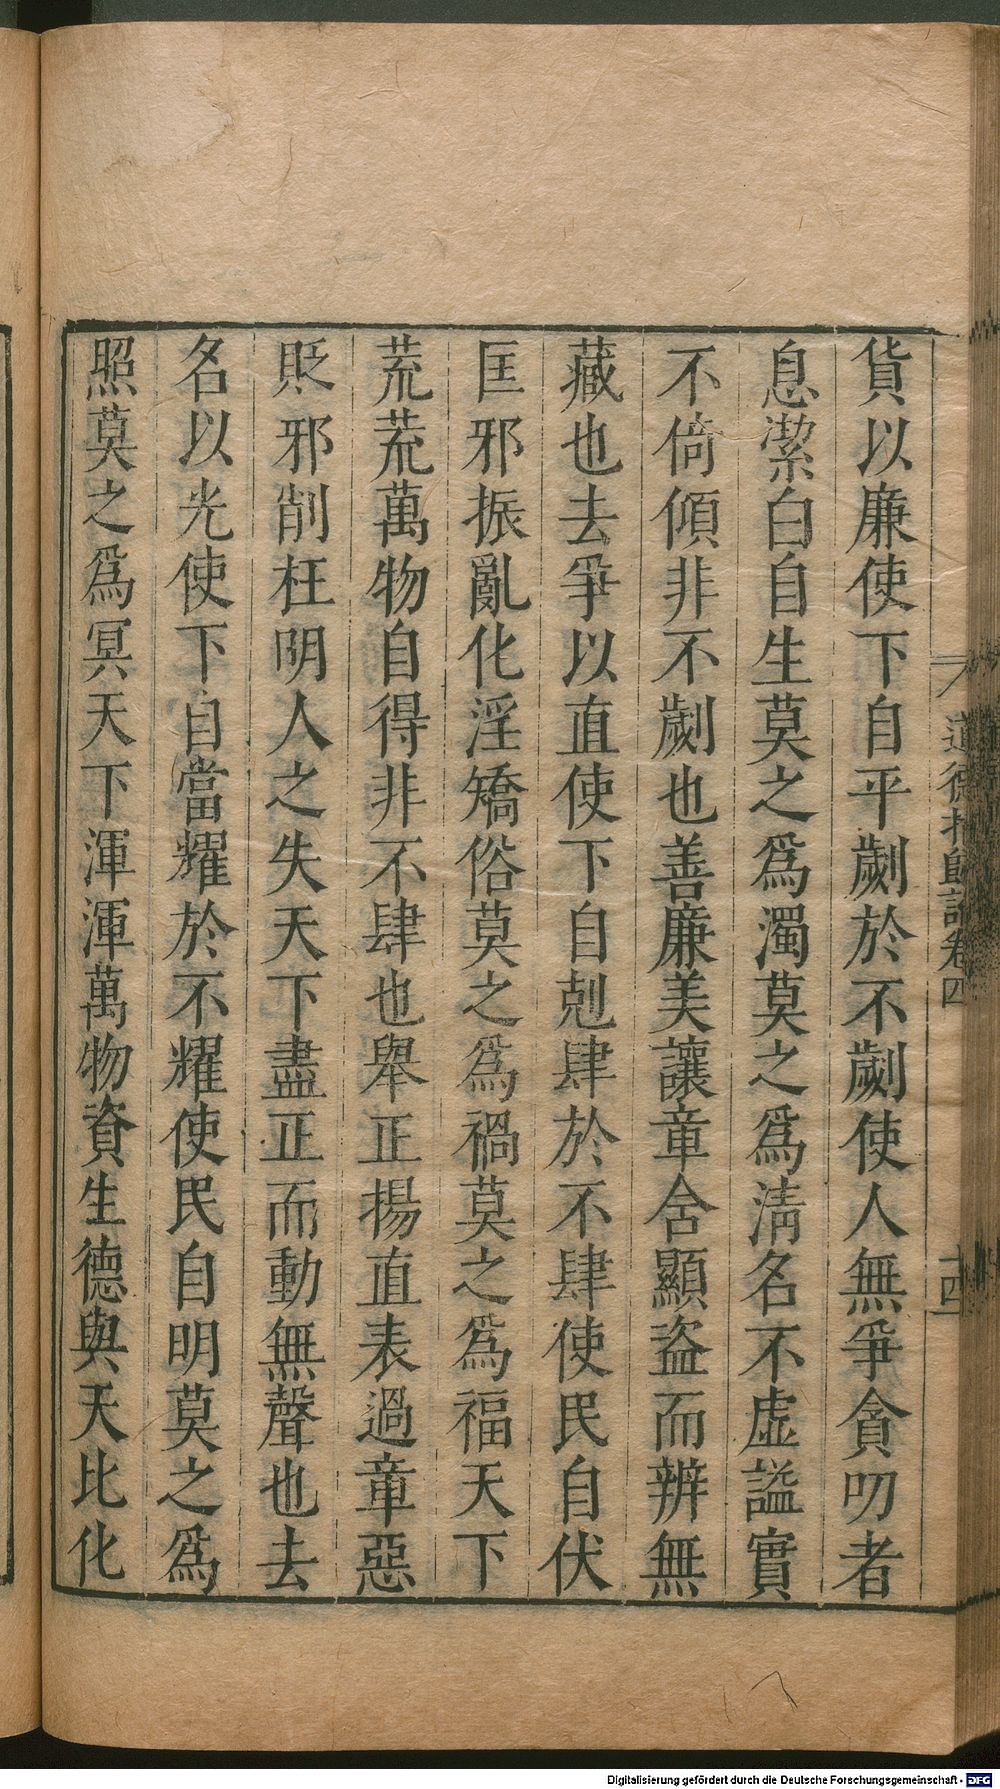 貨以廉使下自平劌於不劌使人無爭貪叨者
息潔白自生莫之爲濁莫之爲淸名不虛謚實
不倚傾非不劌也善廉美讓章舍顯盜而辨無
藏也去爭以直使下自剋肆於不肆使民自伏
匡邪振亂化淫矯俗莫之爲禍莫之爲福天下
荒荒萬物自得非不肆也舉正揚直表過章惡
貶邪削枉明人之失天下盡正而動無聲也去
名以光使下自當耀於不耀使民自明莫之爲
照莫之爲冥天下渾渾萬物資生德與天比化
道德指歸論卷四
十四
Digitalisierung gefördert durch die Deutsche Forschungsgemeinschaft - DFG